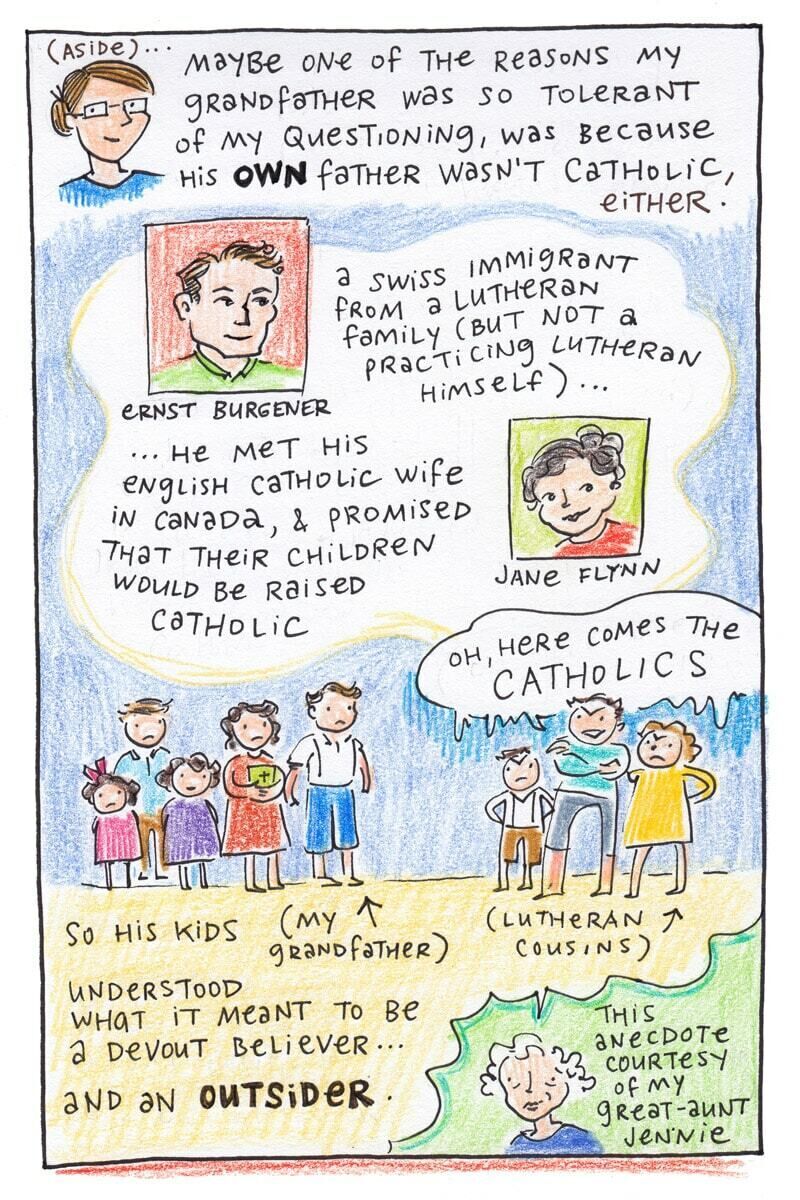 (ASIDE)...
MAYBE ONE OF THE REASONS MY
GRANDFATHER WAS SO TOLERANT
OF MY QUESTIONING, WAS BECAUSE
HIS OWN FATHER WASN'T CATHOLIC,
EITHER.
A SWISS IMMIGRANT
FROM A LUTHERAN
FAMILY (BUT NOT A
PRACTICING LUTHERAN
HIMSELF)...
ERNST BURGENER
...HE MET HIS
ENGLISH CATHOLIC WIFE
IN CANADA, & PROMISED
THAT THEIR CHILDREN
WOULD BE RAISED
CATHOLIC
JANE FLYNN
OH, HERE COMES THE
CATHOLICS
SO HIS KIDS
(MY ↑
GRANDFATHER)
(LUTHERAN ↗
COUSINS)
UNDERSTOOD
WHAT IT MEANT TO BE
A DEVOUT BELIEVER...
AND AN OUTSIDER.
THIS
ANECDOTE
COURTESY
OF MY
GREAT-AUNT
JENNIE